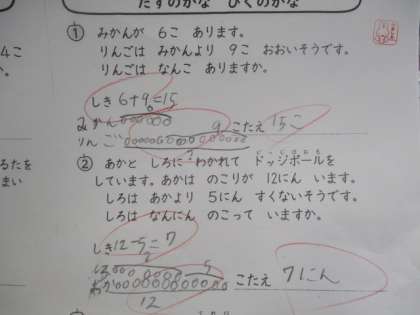 たすのかな ひくのかな
① みかんが 6こ あります。
りんごは みかんより 9こ おおいそうです。
りんごは なんこ ありますか。
しき 6+9=15
みかん
りんご 9 こたえ 15こ
② あかと しろに わかれて ドッジボールを
しています。あかは のこりが 12にん います。
しろは あかより 5にん すくないそうです。
しろは なんにん のこって いますか。
しき 12-5=7
しろ 5
あか こたえ 7にん
12
4こ
るたを
まい